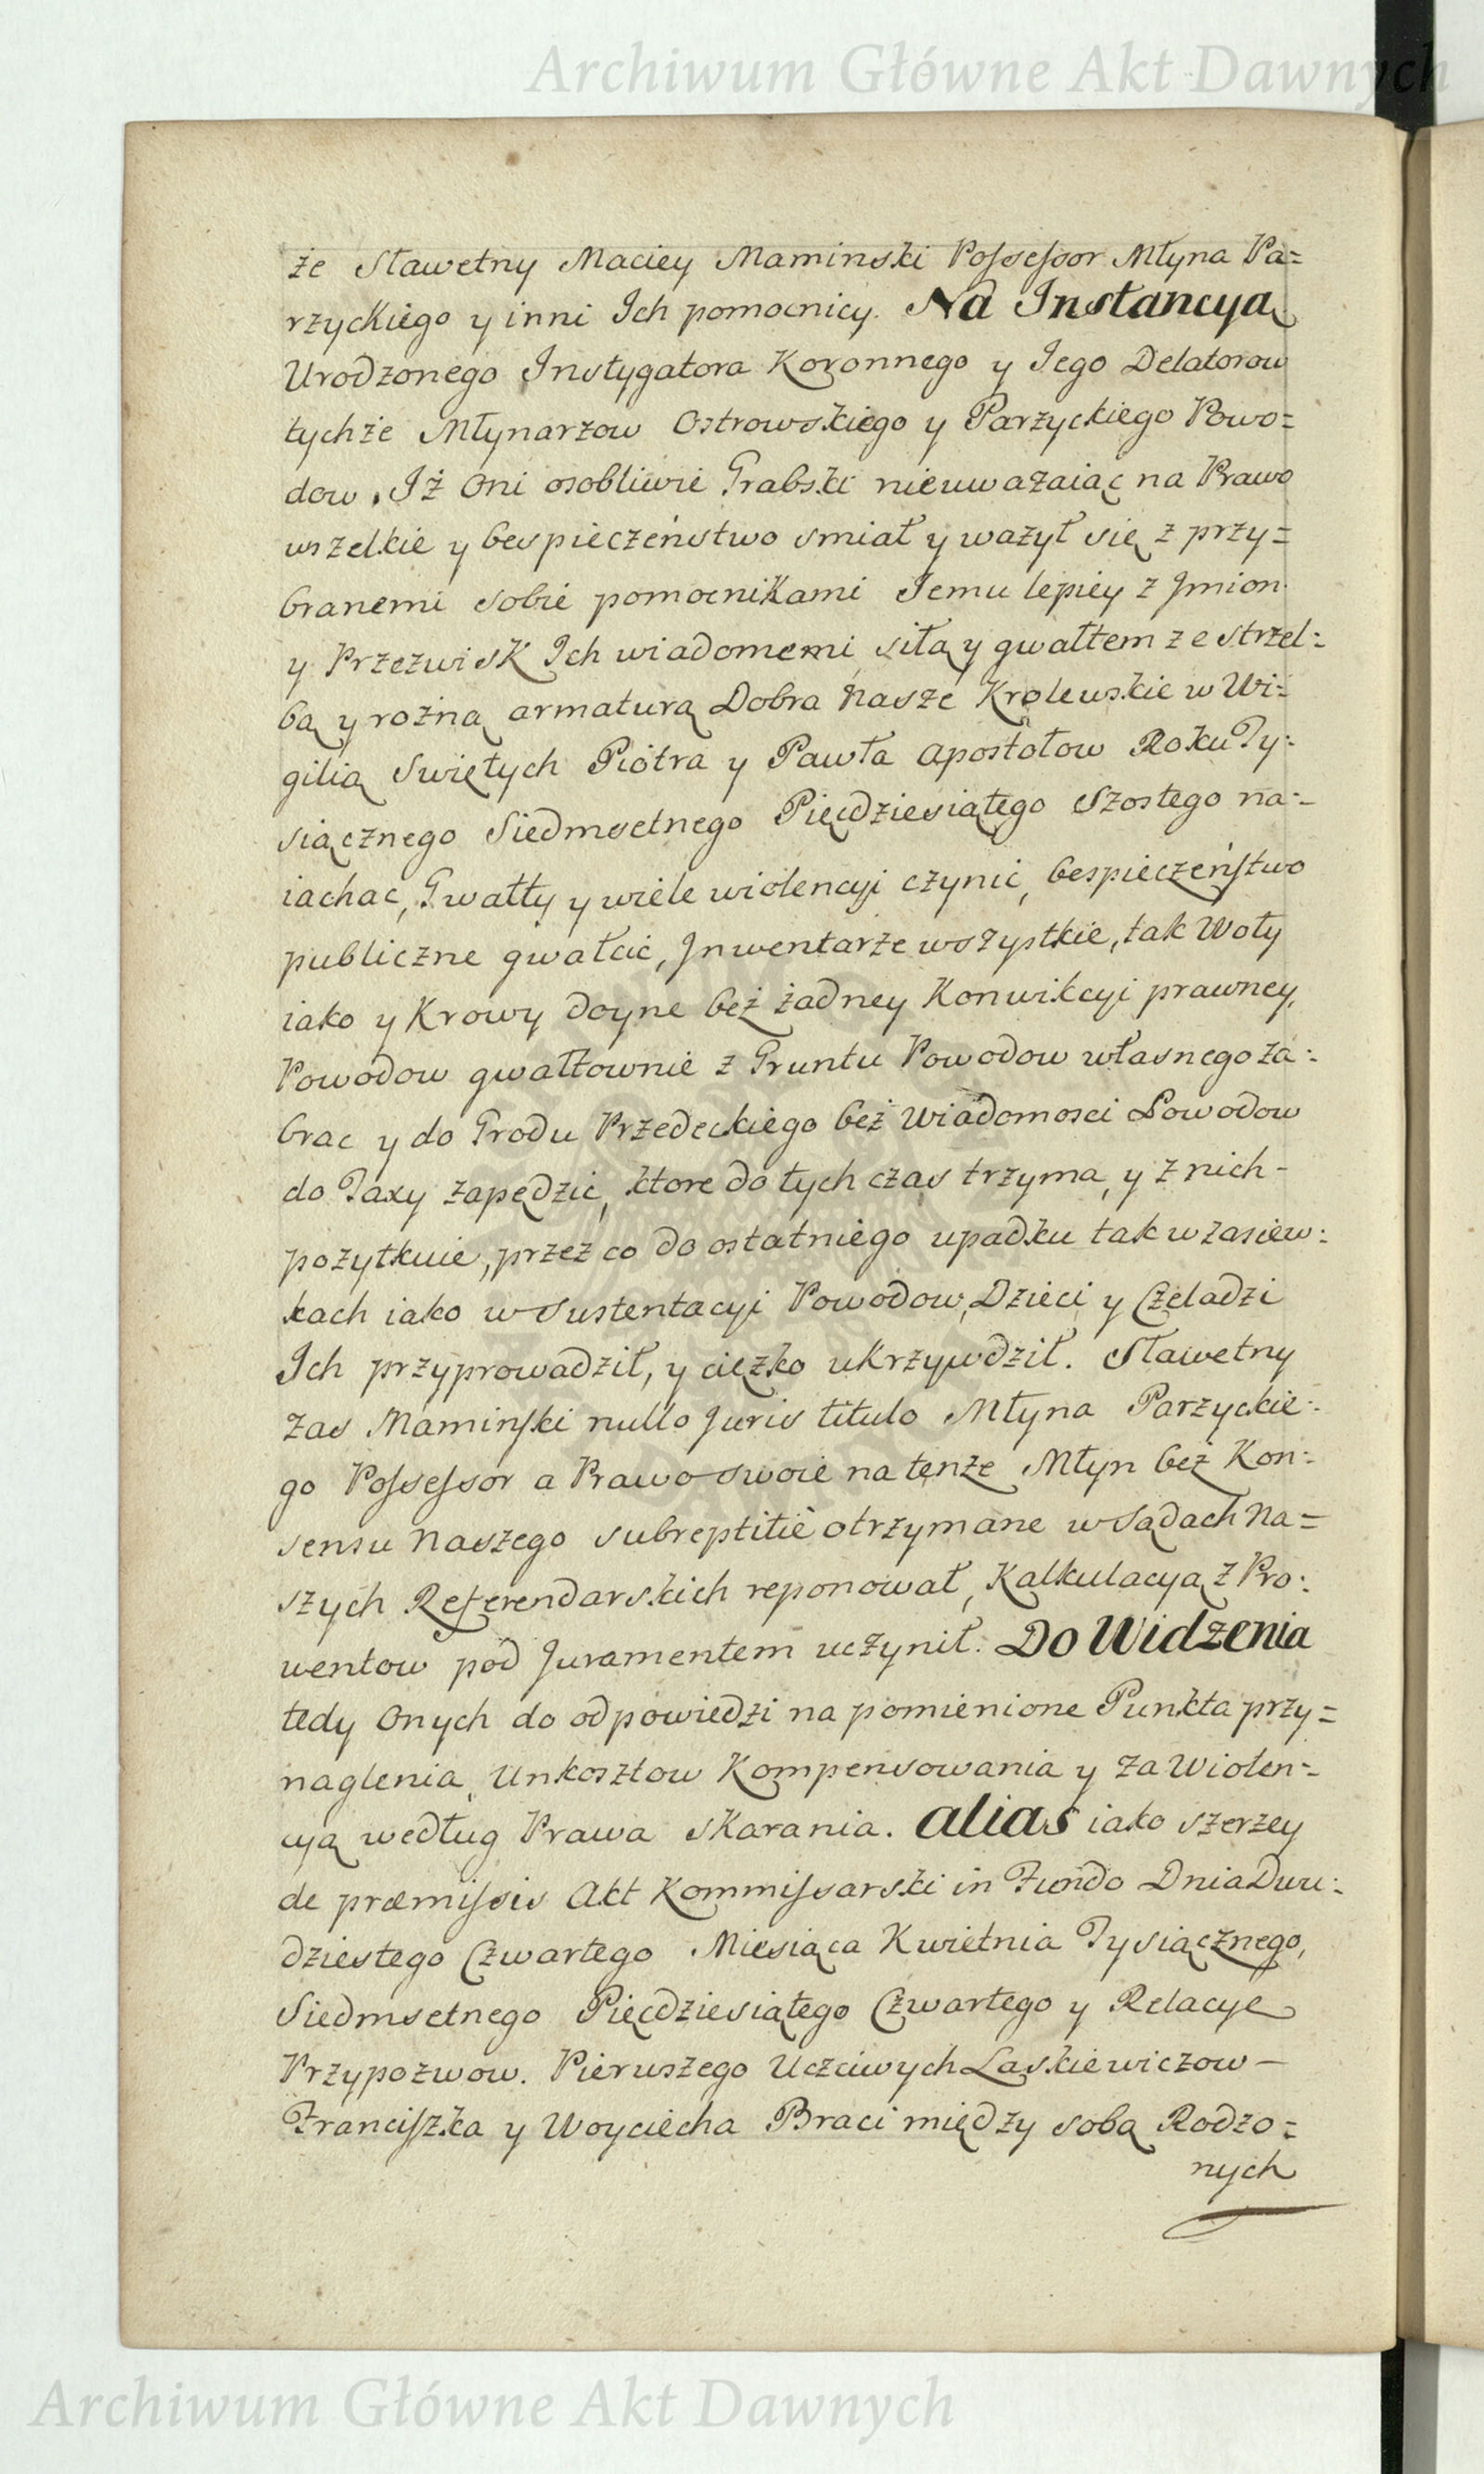 Archiwum Główne Akt Dawnych
że Sławetny Maciey Maminski Possessor Młyna Pa=
rzyckiego y inni Ich pomocnicy. Na Instancyą
Urodzonego Instygatora Koronnego y Iego Delatorow
tychże Młynarzow Ostrowskiego y Parzyckiego Powo=
dow. Iż Oni osobliwie Grabski nieuważaiąc na Prawo
wszelkie y bespieczeństwo smiał y ważył się z przy=
branemi sobie pomocnikami Iemu lepiey z Jmion
y Przezwisk Ich wiadomemi, siłą y gwałtem ze strzel:
bą y rożną armaturą Dobra Nasze Krolewskie w Wi:
gilią Swiętych Piotra y Pawła Apostołow Roku Ty:
siącznego Siedmsetnego Pięćdziesiątego Szostego na:
iachac, Gwałty y wiele wiolencyi czynic, bespieczeństwo
publiczne gwałcic, Jnwentarze wszystkie, tak Woły
iako y Krowy doyne beż żadney Konwikcyi prawney,
Powodow gwałtownie z Gruntu Powodow własnego za:
brac y do Grodu Przedeckiego beż wiadomosci Powodow
do Taxy zapędzic, ktore do tych czas trzyma, y z nich-
pożytkuie, przez co do ostatniego upadku tak w zasiew:
kach iako w Sustentacyi Powodow, Dzieci y Czeladzi
Ich przyprowadził, y cięzko ukrzywdził. Sławetny
zas Maminski nullo Juris titulo Młyna Parzyckie:
go Possessor a Prawo swoie na tenże Młyn beż Kon:
sensu Naszego subreptitiè otrzymane w Sądach Na=
szych Referendarskich reponował, Kalkulacyą z Pro:
wentow pod Juramentem uczynił. Do Widzenia
tedy Onych do odpowiedzi na pomienione Punkta przy=
naglenia, Unkosztow Kompensowania y za Wiolen=
cyą według Prawa skarania. alias iako szerzey
de præmissis Akt Kommissarski in Fundo Dnia Dwu:
dziestego Czwartego Miesiąca Kwietnia Tysiącznego,
Siedmsetnego Pięćdziesiątego Czwartego y Relacye
Przypozwow. Pierwszego Uczciwych Laskiewiczow-
Franciszka y Woyciecha Braci między sobą Rodzo=
nych
Archiwum Główne Akt Dawnych